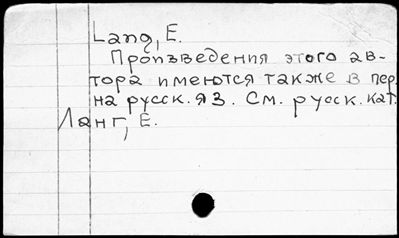 Lang, E.
Произведения этого ав-
тора имеются также в пер.
на русск. яз. См. русск. кат.
Ланг, Е.